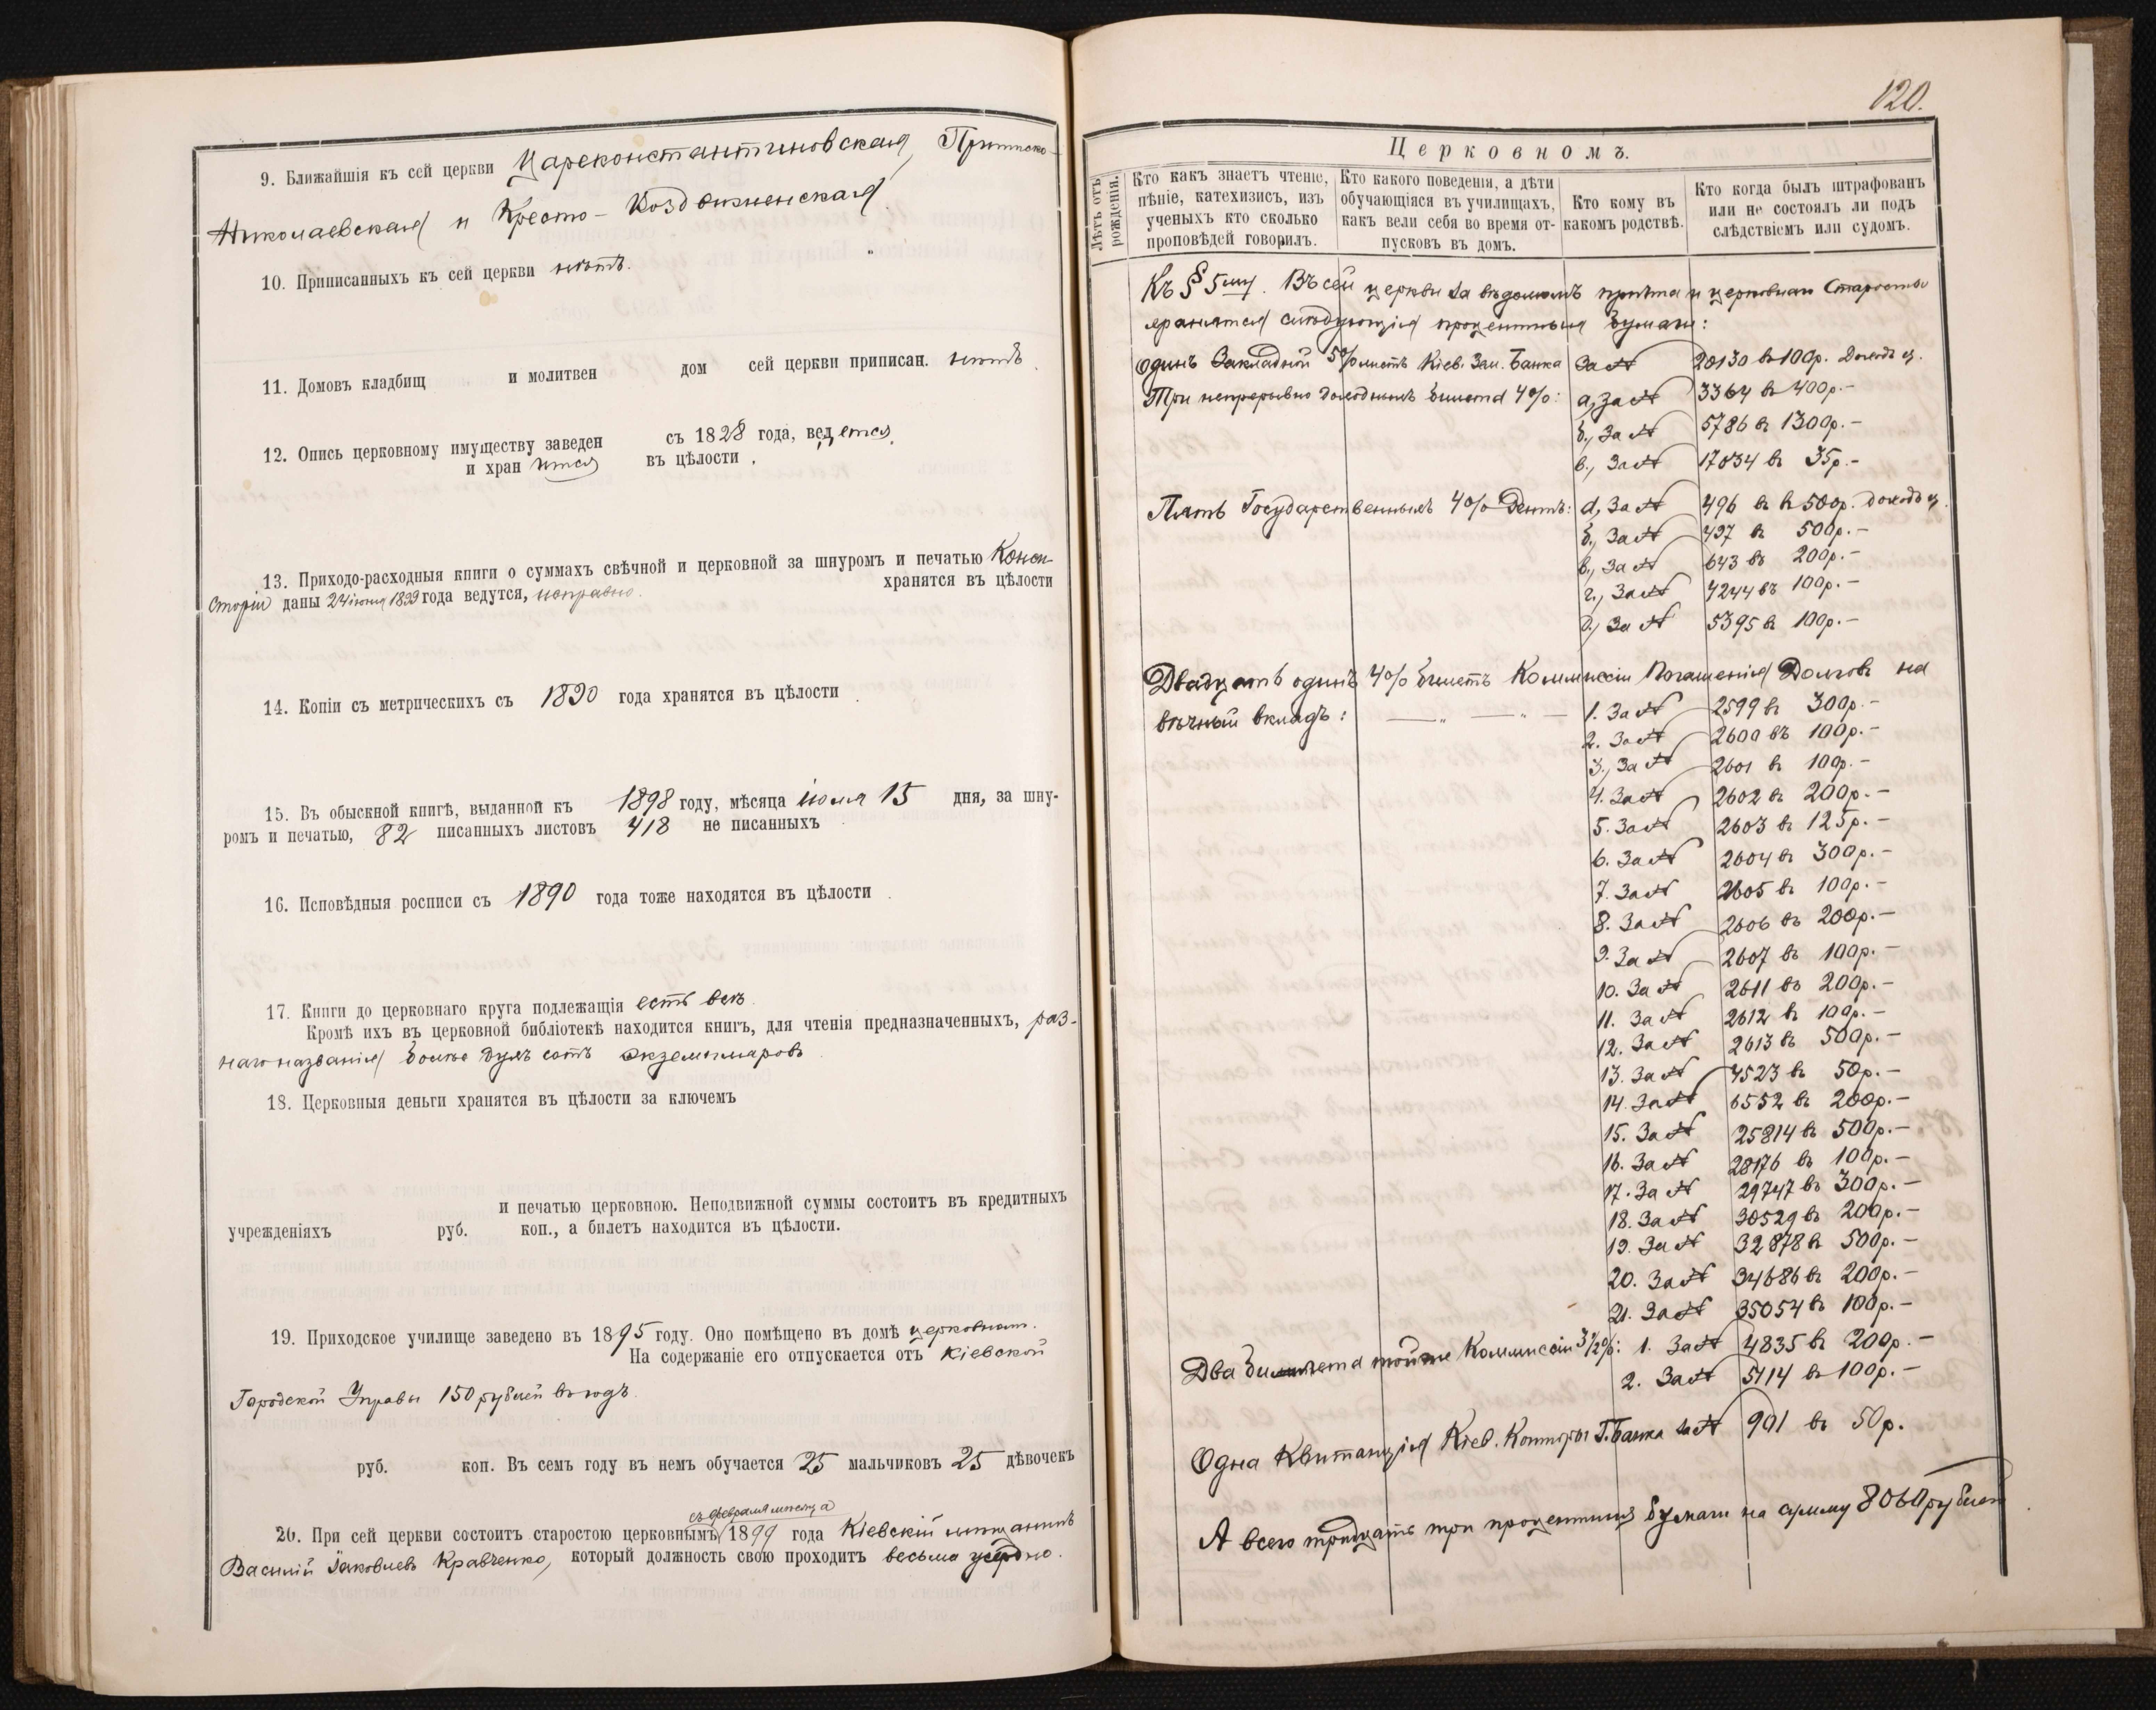 9. Ближайшія къ сей церкви Цареконстантиновская, Притиско-
Николаевская и Кресто-Воздвиженская.
10. Приписанныхъ къ сей церкви нѣтъ.
11. Домовъ кладбищ и молитвен дом сей церкви приписан. нѣтъ.
12. Опись церковному имуществу заведен съ 1828 года, ведется,
и хранится въ цѣлости.
13. Приходо-расходныя книги о суммахъ свѣчной и церковной за шнуромъ и печатью Конси-
сторіи даны 24 1899 года ведутся, исправно. хранятся въ цѣлости
14. Копіи съ метрическихъ съ 1890 года хранятся въ цѣлости
15. Въ обыскной книгѣ, выданной къ 1898 году, мѣсяца іюля 15 дня, за шну-
ромъ и печатью, 82 писанныхъ листовъ 418 не писанныхъ
16. Исповѣдныя росписи съ 1890 года тоже находятся въ цѣлости
17. Книги до церковнаго круга подлежащія есть всѣ.
Кромѣ ихъ въ церковной библіотекѣ находится книгъ, для чтенія предназначенныхъ, раз-
наго названія болѣе двухъ сотъ экземпляровъ
18. Церковныя деньги хранятся въ цѣлости за ключемъ
и печатью церковною. Неподвижной суммы состоитъ въ кредитныхъ
учрежденіяхъ руб. коп., а билетъ находится въ цѣлости.
19. Приходское училище заведено въ 1895 году. Оно помѣщено въ домѣ церковном.
На содержаніе его отпускается отъ Кіевской
Городской Управы 150 рублей въ годъ.
руб. коп. Въ семъ году въ немъ обучается 25 мальчиковъ 25 дѣвочекъ
съ февраля мѣсяца
20. При сей церкви состоитъ старостою церковнымъ 1899 года Кіевскій мѣщанинъ
Василій Іаковлевъ Кравченко, который должность свою проходитъ весьма усердно.
120.
Церковномъ.
Лѣтъ отъ рожденія.
Кто какъ знаетъ чтеніе, пѣніе, катехизисъ, изъ ученыхъ кто сколько проповѣдей говорилъ.
Кто какого поведенія, а дѣти обучающіяся въ училищахъ, какъ вели себя во время отпусковъ въ домъ.
Кто кому въ какомъ родствѣ.
Кто когда былъ штрафованъ или не состоялъ ли подъ слѣдствіемъ или судомъ.
Къ § 5му. Въ сей церкви за вѣдомомъ причта и церковнаго Старосты
хранятся слѣдующія процентныя бумаги:
Одинъ Закладной 5% листъ Кіев. Зем. Банка За № 20130 въ 100р.
Три непрерывно доходныхъ билета 4%: а, за № 3364 въ 400р.-
б., За № 5786 въ 1300р.-
в., За № 17034 въ 35р.-
Пять Государственныхъ 4% Рентъ: а, За № 496 въ 500р.
б., За № 497 въ 500р.-
в., За № 643 въ 200р.-
г., За № 4244 въ 100р.-
д., За № 5395 въ 100р.-
Двадцать одинъ 4% билетъ Коммиссіи Погашенія Долговъ на
вѣчный вкладъ: — „ — „ — 1. За № 2599 въ 300р.-
2. За № 2600 въ 100р.-
3., За № 2601 въ 100р.-
4. За № 2602 въ 200р.-
5. За № 2603 въ 125р.-
6. За № 2604 въ 300р.-
7. За № 2605 въ 100р.-
8. За № 2606 въ 200р.-
9. За № 2607 въ 100р.-
10. За № 2611 въ 200р.-
11. За № 2612 въ 100р.-
12. За № 2613 въ 500р.-
13. За № 4523 въ 50р.-
14. За № 6552 въ 200р.-
15. За № 25814 въ 500р.-
16. За № 28176 въ 100р.-
17. За № 29747 въ 300р.-
18. За № 30529 въ 200р.-
19. За № 32878 въ 500р.-
20. За № 34686 въ 200р.-
21. За № 35054 въ 100р.-
Два билета тойже Коммиссіи 3½%: 1. За № 4835 въ 200р.-
2. За № 5114 въ 100р.-
Одна Квитанція Кіев. Конторы Г. Банка за № 901 въ 50р.
А всего тридцать три процентныхъ бумаги на сумму 8060 рублей